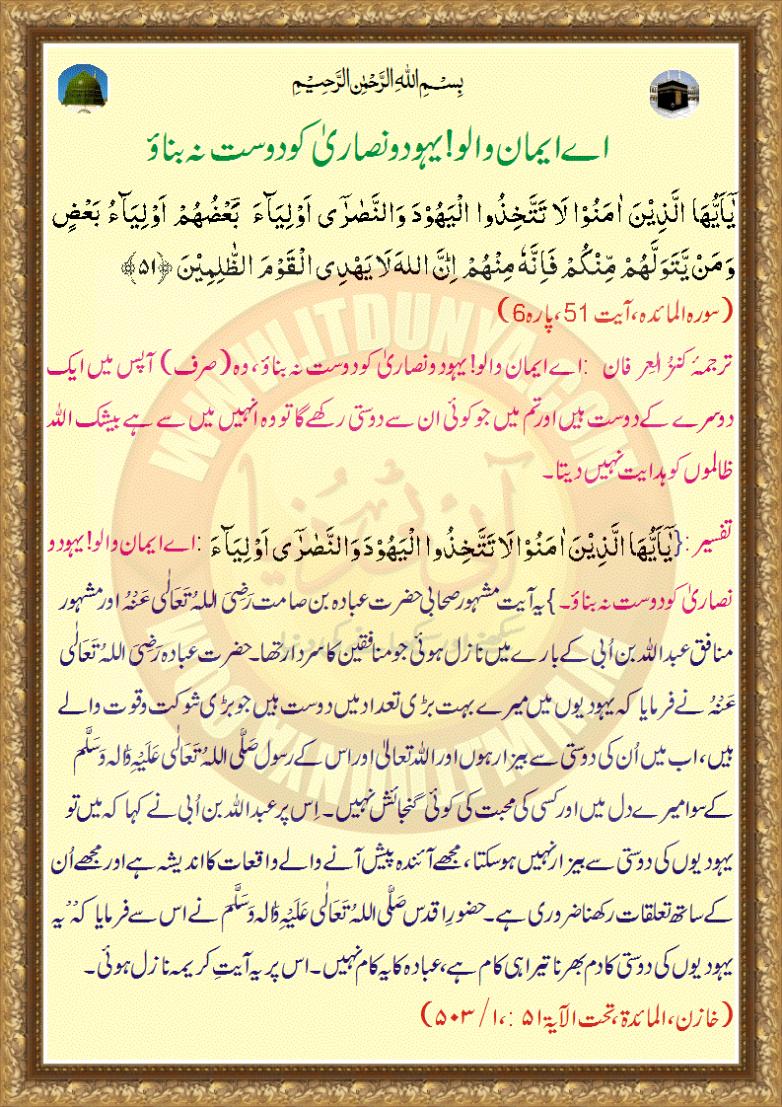 بِسْمِ اللهِ الرَّحْمٰنِ الرَّحِيْمِ
اے ایمان والو! یہود و نصاریٰ کو دوست نہ بناؤ
یٰۤاَیُّهَا الَّذِیْنَ اٰمَنُوْا لَا تَتَّخِذُوا الْیَهُوْدَ وَ النَّصٰرٰۤى اَوْلِیَآءَ ؔ بَعْضُهُمْ اَوْلِیَآءُ بَعْضٍ
وَ مَنْ یَّتَوَلَّهُمْ مِّنْكُمْ فَاِنَّهٗ مِنْهُمْ اِنَّ اللهَ لَا یَهْدِی الْقَوْمَ الظّٰلِمِیْنَ ﴿۵۱﴾
(سورہ المائدہ، آیت 51، پارہ 6)
ترجمۂ کنزُ العِرفان : اے ایمان والو! یہود و نصاریٰ کو دوست نہ بناؤ، وہ (صرف) آپس میں ایک
دوسرے کے دوست ہیں اور تم میں جو کوئی ان سے دوستی رکھے گا تو وہ انہیں میں سے ہے بیشک اللہ
ظالموں کو ہدایت نہیں دیتا۔
تفسیر: {یٰۤاَیُّهَا الَّذِیْنَ اٰمَنُوْا لَا تَتَّخِذُوا الْیَهُوْدَ وَ النَّصٰرٰۤى اَوْلِیَآءَ : اے ایمان والو! یہود و
نصاریٰ کو دوست نہ بناؤ۔} یہ آیت مشہور صحابی حضرت عبادہ بن صامت رَضِیَ اللہُ تَعَالٰی عَنْہُ اور مشہور
منافق عبد اللہ بن اُبی کے بارے میں نازل ہوئی جو منافقین کا سردار تھا۔ حضرت عبادہ رَضِیَ اللہُ تَعَالٰی
عَنْہُ نے فرمایا کہ یہودیوں میں میرے بہت بڑی تعداد میں دوست ہیں جو بڑی شوکت و قوت والے
ہیں، اب میں اُن کی دوستی سے بیزار ہوں اور اللہ تعالیٰ اور اس کے رسول صَلَّی اللہُ تَعَالٰی عَلَیْہِ وَاٰلہٖ وَسَلَّمَ
کے سوا میرے دل میں اور کسی کی محبت کی کوئی گنجائش نہیں۔ اِس پر عبد اللہ بن اُبی نے کہا کہ میں تو
یہودیوں کی دوستی سے بیزار نہیں ہو سکتا، مجھے آئندہ پیش آنے والے واقعات کا اندیشہ ہے اور مجھے اُن
کے ساتھ تعلقات رکھنا ضروری ہے۔ حضورِ اقدس صَلَّی اللہُ تَعَالٰی عَلَیْہِ وَاٰلہٖ وَسَلَّمَ نے اس سے فرمایا کہ ’’یہ
یہودیوں کی دوستی کا دم بھرنا تیرا ہی کام ہے، عبادہ کا یہ کام نہیں۔ اس پر یہ آیتِ کریمہ نازل ہوئی۔
(خازن، المائدۃ، تحت الآیۃ ۵۱ : ،۱ / ۵۰۳)
WWW.ITDUNYA.COM
آئی ٹی دنیا
WWW.ITDUNYA.COM